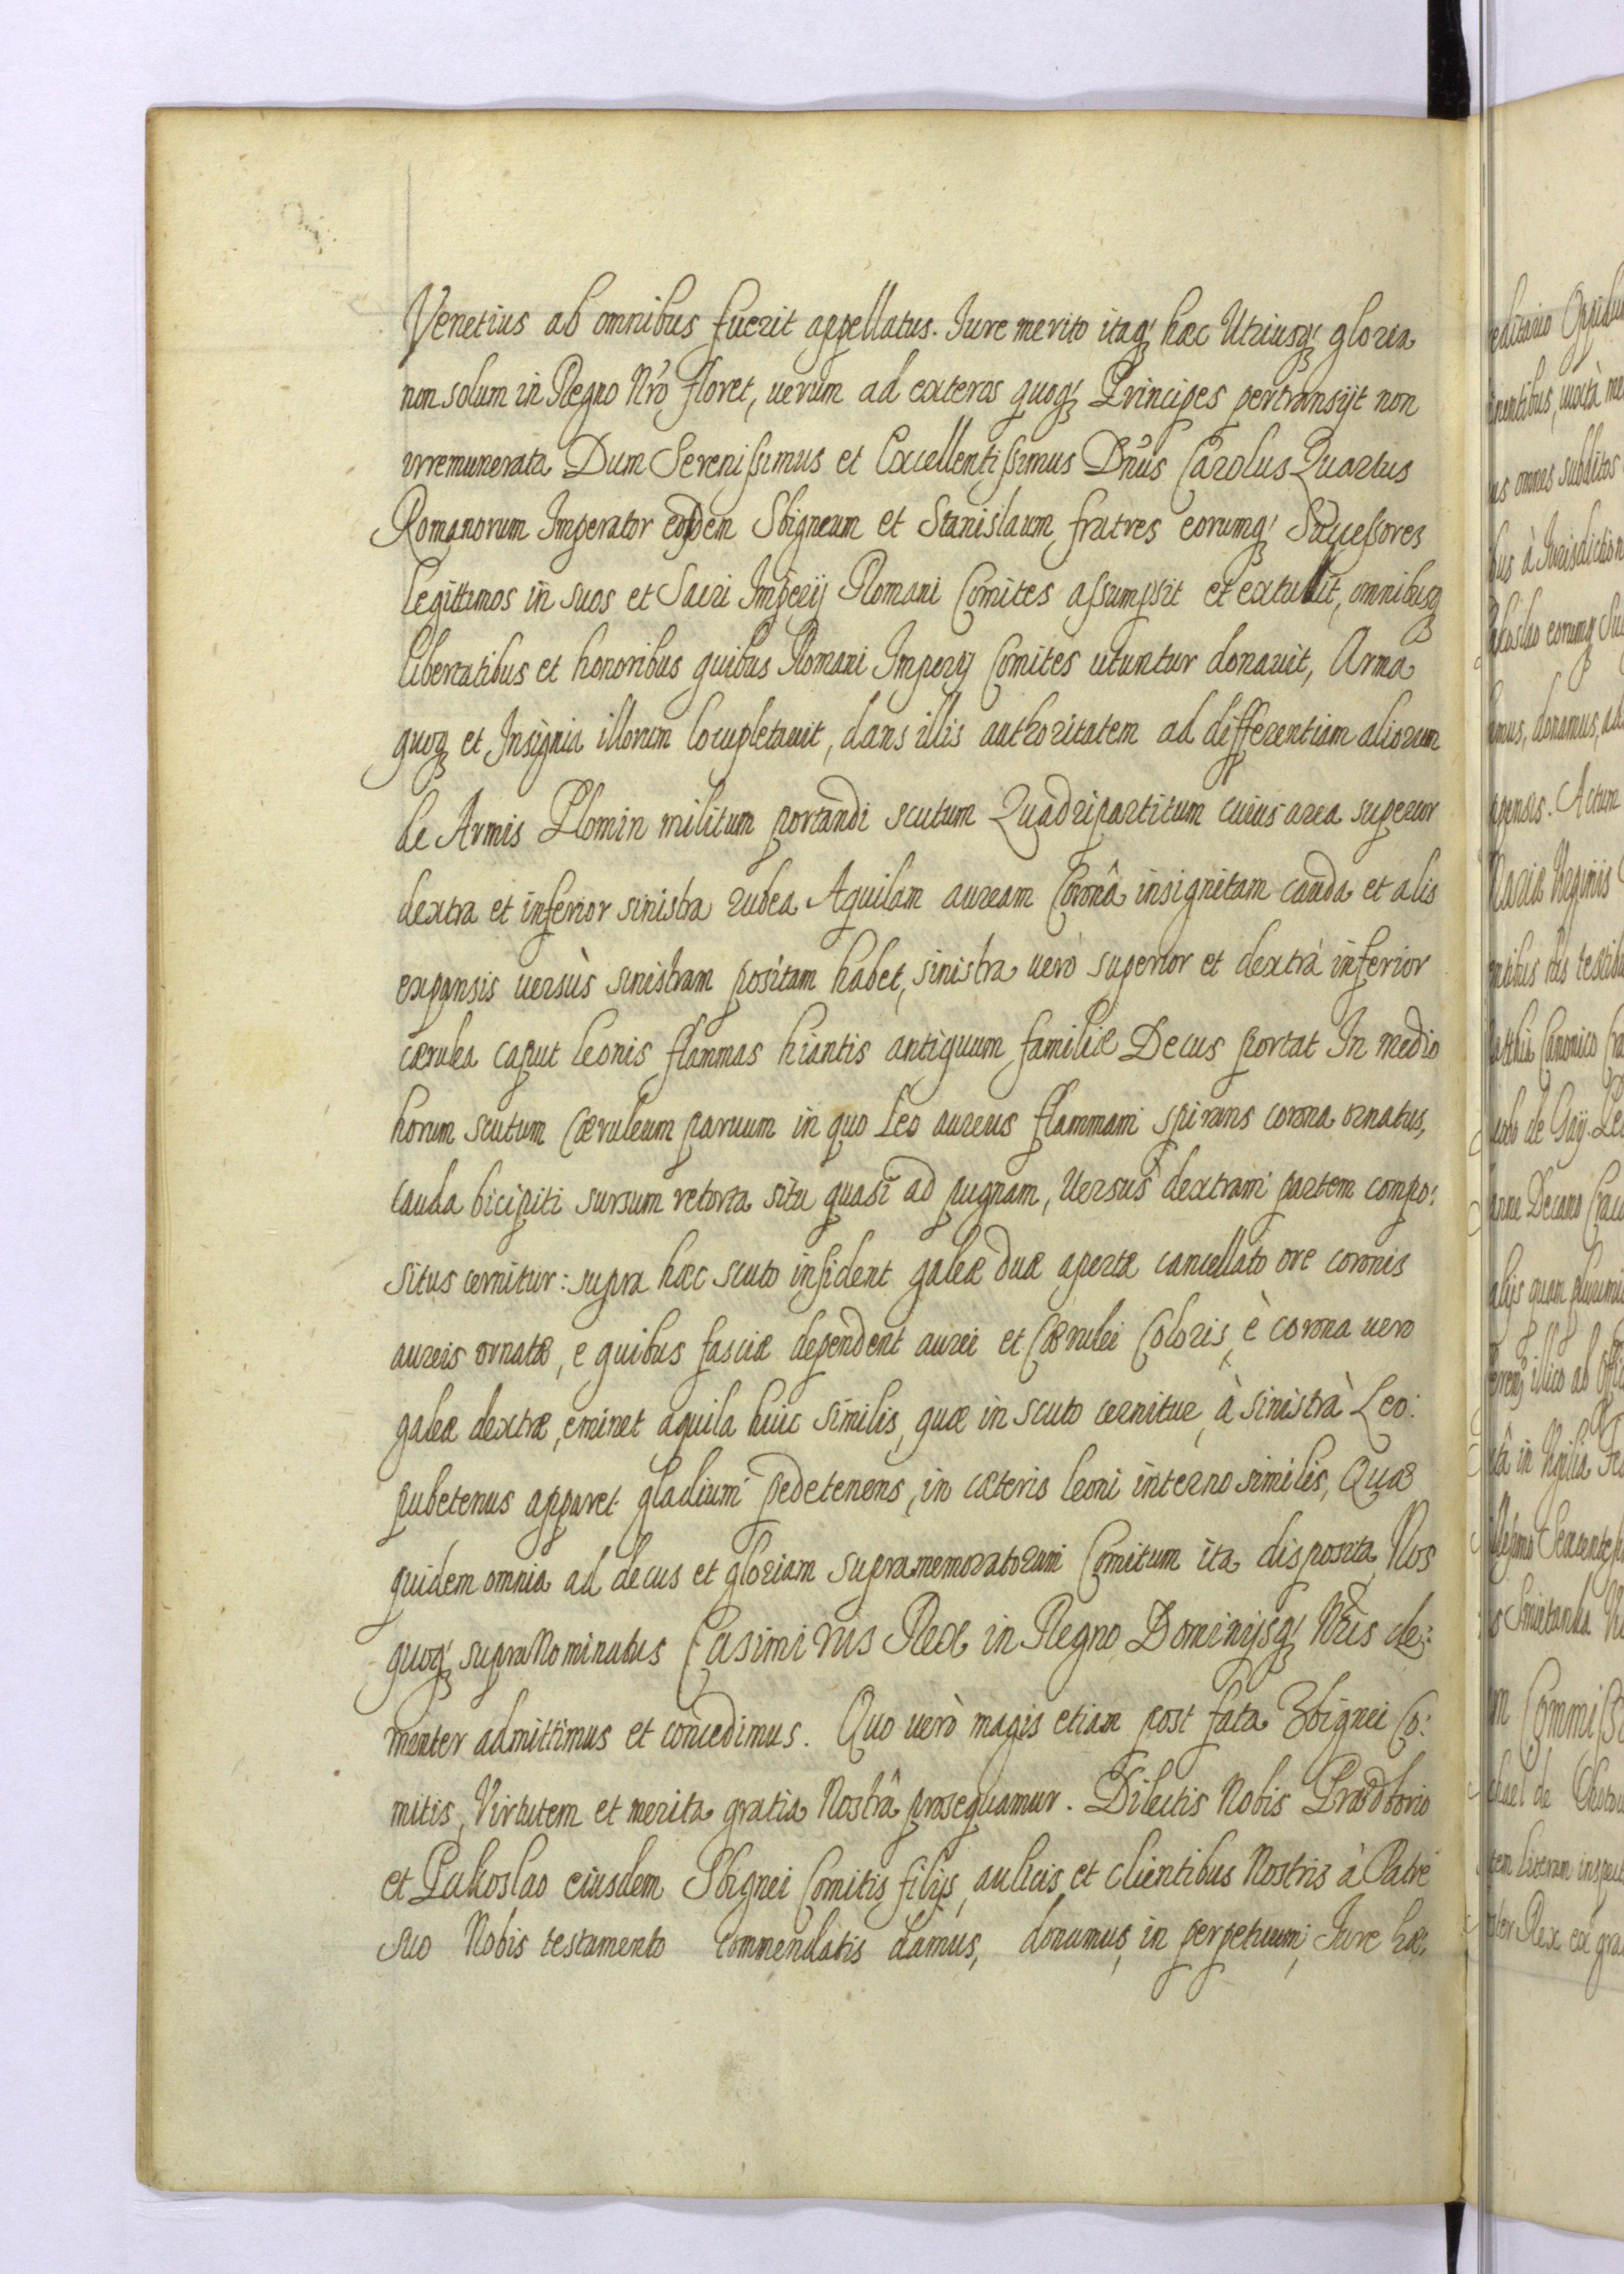 Venetius ab omnibus fuerit appellatus. Iure merito itaq; hæc Utriusq; gloria
non solum in Regno Nr̃o floret, uerum ad exteros quoq; Principes pertransijt non
irremunerata Dum Serenissimus et Excellentissimus Dñus Carolus Quartus
Romanorum Imperator eosdem Sbigneum et Stanislaum fratres eorumq; Successores
legittimos in suos et Sacri Imperij Romani Comites assumpsit et extulit, omnibusq
libertatibus et honoribus quibus Romani Imperij Comites utuntur donauit, Arma
quoq et Insignia illorum locupletauit, dans illis authoritatem ad differentiam aliorum
de Armis Plomin militum portandi scutum Quadripartitum cuius area superior
dextra et inferior sinistra rubea Aquilam auream Coronâ insignitam cauda et alis
expansis uersùs sinistram positam habet, sinistra uerò superior et dextrà inferior
cærulea caput leonis flammas hiantis antiquum familiæ Decus portat In medio
horum scutum Cæruleum paruum in quo Leo aureus flammam spirans corona ornatus,
cauda bicipiti sursum retorta situ quasi ad pugnam, Uersus dextram partem compo:
situs cernitur: supra hæc scuto insident galeæ duæ apertæ cancellato ore coronis
aureis ornatæ, e quibus fasciæ dependent aurei et Cærulei Coloris, è corona uero
galeæ dextræ, eminet aquila huic similis, quæ in scuto cernitur, à sinistrà Leo:
pubetenus apparet gladium pedetenens, in cæteris leoni interno similis, Quæ
quidem omnia ad decus et gloriam supramemoratorum Comitum ita disposita, Nos
quoq; supra Nominatus Casimirus Rex in Regno Dominijsq; Nr̃is cle:
menter admittimus et concedimus. Quo uerò magis etiam post fata Zbignei Co:
mitis, Virtutem et merita gratia Nostrâ prosequamur. Dilectis Nobis Prædborio
et Pakoslao eiusdem Sbignei Comitis filijs, aulicis et clientibus Nostris à Patre
suo Nobis testamento commendatis damus, donamus, in perpetuum, Iure hæ: